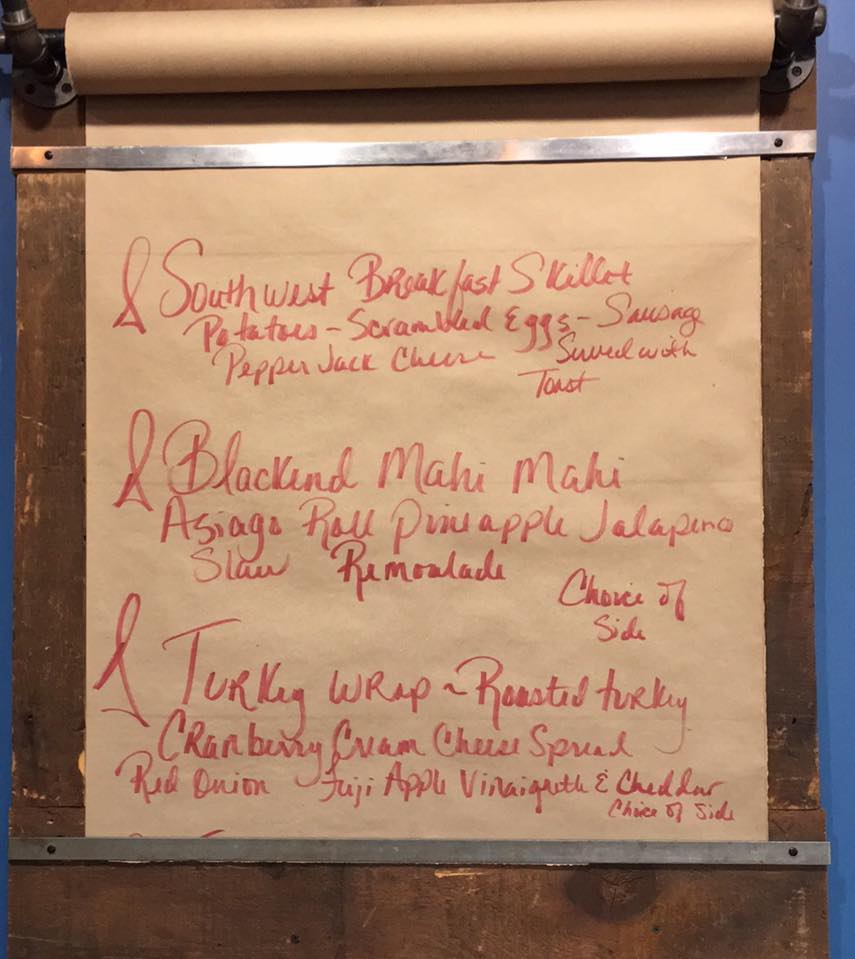 Southwest Breakfast Skillet
Potatoes - Scrambled Eggs - Sausage
Pepper Jack Cheese Served with
Toast
Blackend Mahi Mahi
Asiago Roll Pineapple Jalapeno
Slaw Remoulade
Choice of
Side
Turkey Wrap ~ Roasted turkey
Cranberry Cream Cheese Spread
Red Onion Fuji Apple Vinaigrette & Cheddar
Choice of Side